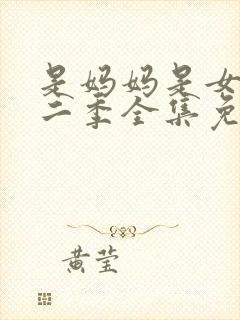 是妈妈是女
二季全集免
黄莹